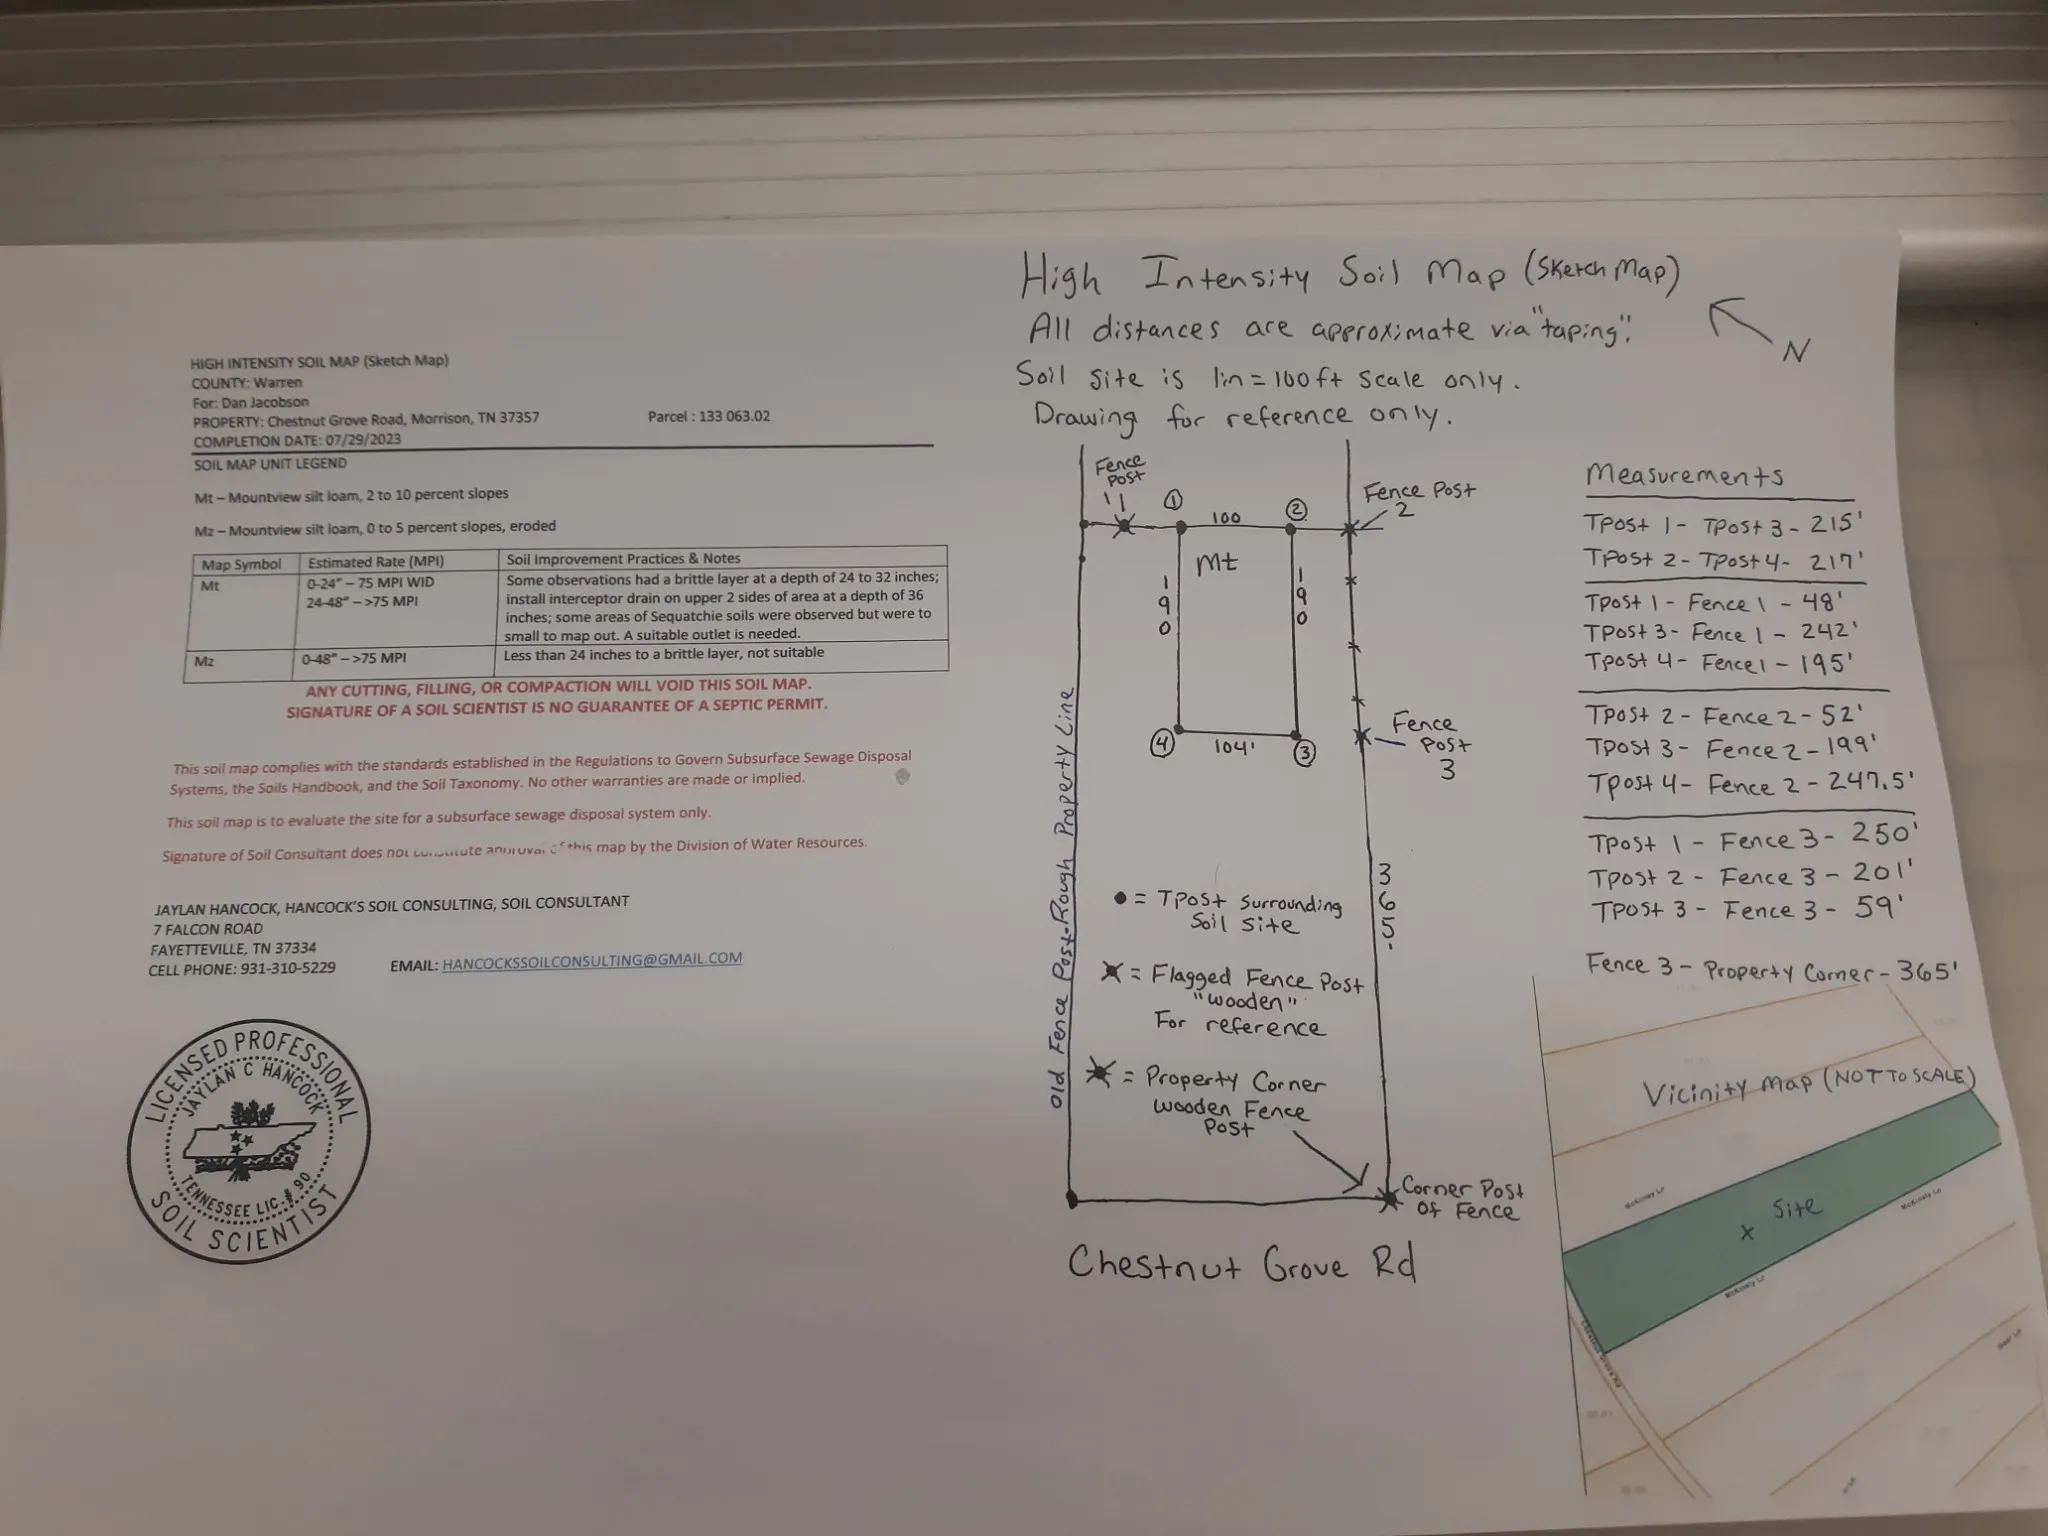 HIGH INTENSITY SOIL MAP (Sketch Map)
COUNTY: Warren
For: Dan Jacobson
PROPERTY: Chestnut Grove Road, Morrison, TN 37357 Parcel : 133 063.02
COMPLETION DATE: 07/29/2023
SOIL MAP UNIT LEGEND
Mt – Mountview silt loam, 2 to 10 percent slopes
Mz – Mountview silt loam, 0 to 5 percent slopes, eroded
Map Symbol Estimated Rate (MPI) Soil Improvement Practices & Notes
Mt 0-24" – 75 MPI WID Some observations had a brittle layer at a depth of 24 to 32 inches;
24-48" – >75 MPI install interceptor drain on upper 2 sides of area at a depth of 36
inches; some areas of Sequatchie soils were observed but were to
small to map out. A suitable outlet is needed.
Mz 0-48" – >75 MPI Less than 24 inches to a brittle layer, not suitable
ANY CUTTING, FILLING, OR COMPACTION WILL VOID THIS SOIL MAP.
SIGNATURE OF A SOIL SCIENTIST IS NO GUARANTEE OF A SEPTIC PERMIT.
This soil map complies with the standards established in the Regulations to Govern Subsurface Sewage Disposal
Systems, the Soils Handbook, and the Soil Taxonomy. No other warranties are made or implied.
This soil map is to evaluate the site for a subsurface sewage disposal system only.
Signature of Soil Consultant does not constitute approval of this map by the Division of Water Resources.
JAYLAN HANCOCK, HANCOCK'S SOIL CONSULTING, SOIL CONSULTANT
7 FALCON ROAD
FAYETTEVILLE, TN 37334
CELL PHONE: 931-310-5229 EMAIL: HANCOCKSSOILCONSULTING@GMAIL.COM
LICENSED PROFESSIONAL
JAYLAN C HANCOCK
TENNESSEE LIC. # 90
SOIL SCIENTIST
High Intensity Soil Map (Sketch Map)
All distances are approximate via "taping".
Soil site is 1in = 100ft scale only.
Drawing for reference only.
N
Fence
Post
1
1
100
2
Fence Post
2
Mt
190
190
4
104'
3
Fence
Post
3
Old Fence Post-Rough Property Line
365'
● = TPost surrounding
Soil site
= Flagged Fence Post
"wooden"
For reference
= Property Corner
wooden Fence
Post
Corner Post
Of Fence
Chestnut Grove Rd
Measurements
TPost 1 - TPost 3 - 215'
TPost 2 - TPost 4 - 217'
TPost 1 - Fence 1 - 48'
TPost 3 - Fence 1 - 242'
TPost 4 - Fence 1 - 195'
TPost 2 - Fence 2 - 52'
TPost 3 - Fence 2 - 199'
TPost 4 - Fence 2 - 247.5'
TPost 1 - Fence 3 - 250'
TPost 2 - Fence 3 - 201'
TPost 3 - Fence 3 - 59'
Fence 3 - Property Corner - 365'
Vicinity Map (NOT TO SCALE)
McKinley Ln
Site
X
McKinely Ln
McKinely Ln
Chestnut Grove Rd